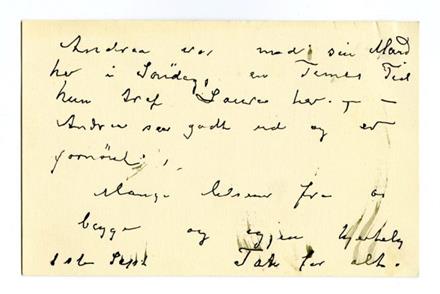 Andrea var med sin Mand
her i Söndag, en Times Tid
hun traf Laura her. —
Andrea saa godt ud og er
fornöiet.
Mange hilsener fra os
begge og igjen hjertelig
1ste Sept Tak for alt.